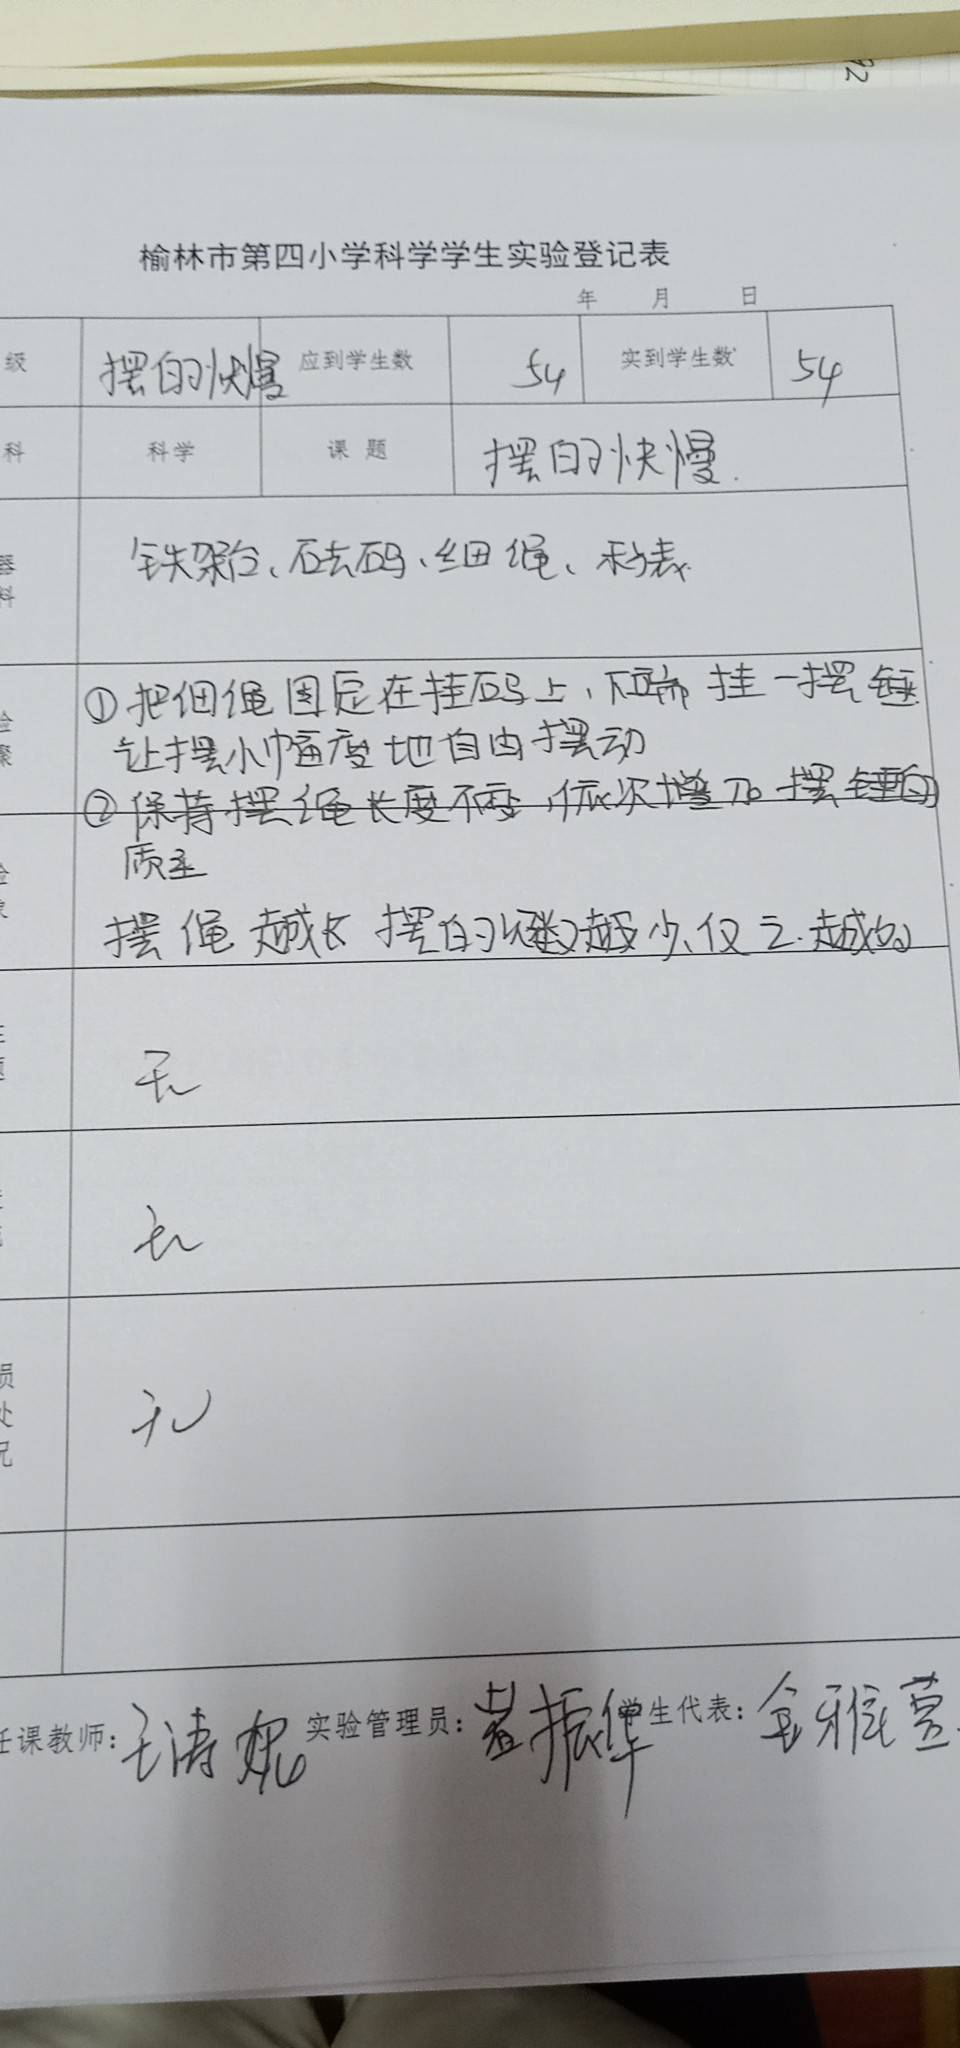 92
榆林市第四小学科学学生实验登记表
年 月 日
级 摆的快慢 应到学生数 54 实到学生数 54
科 科学 课题 摆的快慢.
器 铁架台、砝码、细绳、秒表.
料
验 ①把细绳固定在挂码上,下端挂一摆锤
骤 让摆小幅度地自由摆动
②保持摆绳长度不变,依次增加摆锤的
验 质量
象 摆绳越长 摆的次数越少,反之.越
无
无
损 无
处
况
任课教师: 王涛妮 实验管理员: 黄振华 学生代表: 金雅萱